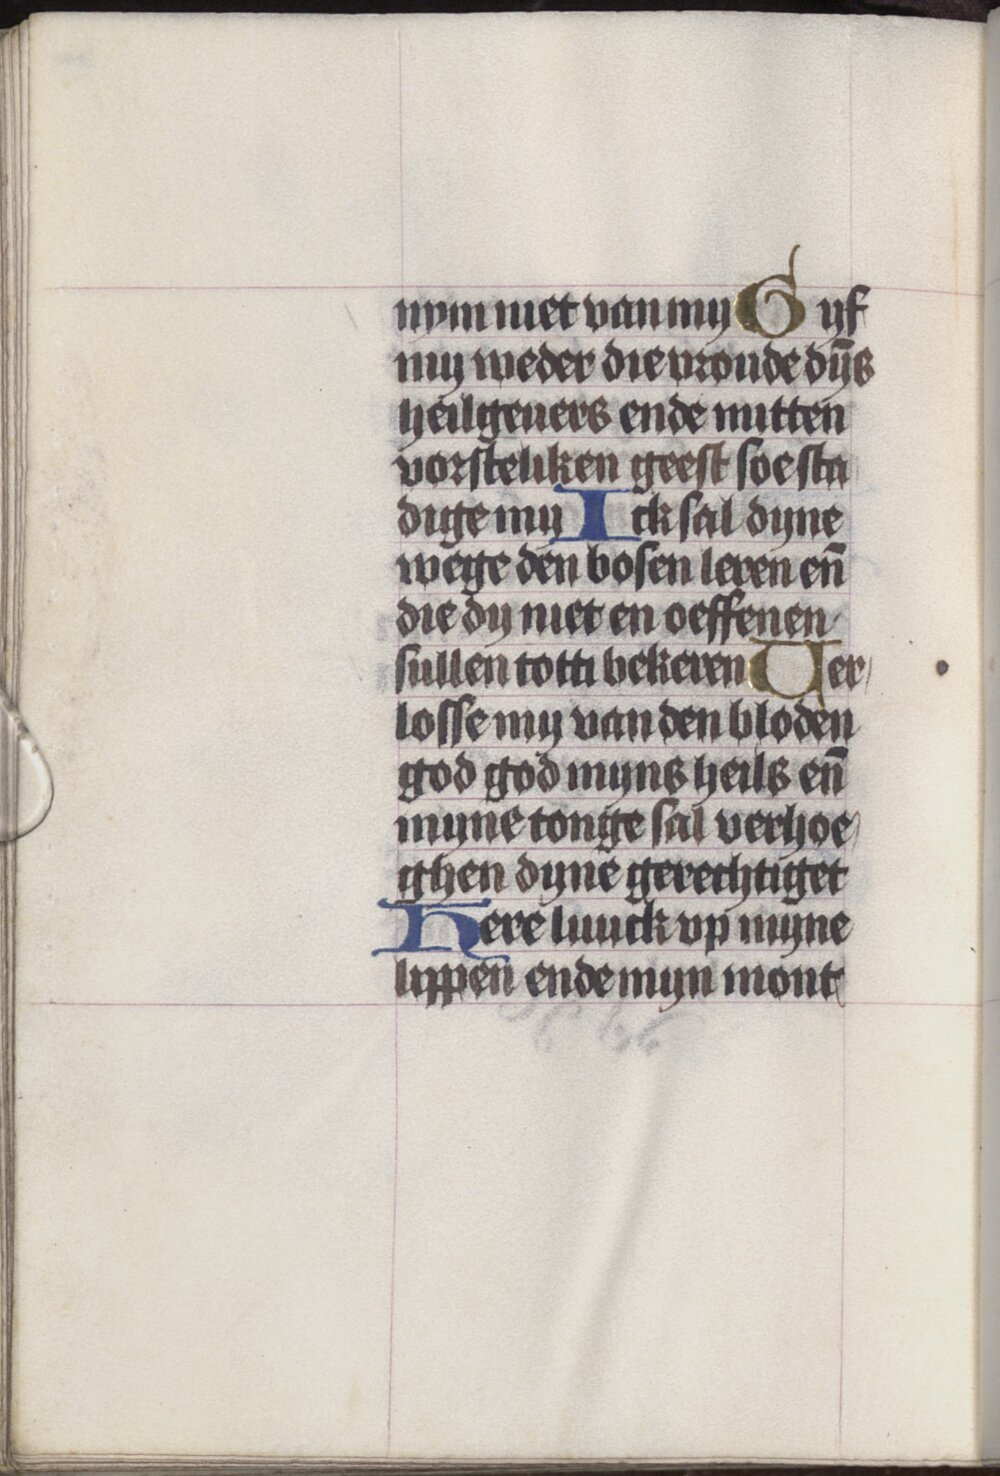 nym niet van my Gyf
my weder die vroude dȳs
heilgeuers ende mitten
vorsteliken geest soe sta
dige my Ick sal dyne
wege den bosen leren en̄
die dy niet en oeffenen
sullen totti bekeren Ver
losse my van den bloden
god god myns heils en̄
myne tonge sal verhoe
ghen dyne gerechtiget
Here luuck vp myne
lippen ende myn mont